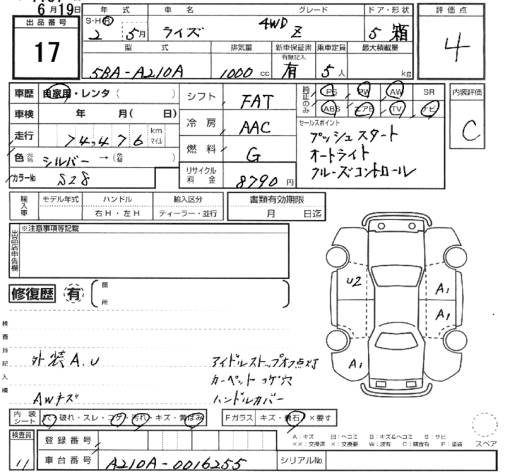 6月19日
出品番号
17
年式 車名 グレード ドア・形状 評価点
S・H・R 2年 5月 ライズ 4WD Z 5 箱 4
型式 排気量 新車保証書 乗車定員 最大積載量
5BA-A210A 1000cc 有 5人 kg
車歴 自家用・レンタ( )
車検 年 月(日)
走行 74,476 km マイル
色 シルバー→( )
カラーNo S28
シフト FAT
冷房 AAC
燃料 G
リサイクル料金 8790円
純正のみ PS PW AW SR
ABS エアB TV ナビ
セールスポイント
プッシュスタート
オートライト
クルーズコントロール
内装評価
C
輸入車 モデル年式 ハンドル 輸入区分 書類有効期限
右H・左H ディーラー・並行 月 日迄
※注意事項等記載
出品店申告欄
修復歴 有 ( 箇所
検査員記入欄
外装A.U
AWキズ
アイドルストップオフ点灯
カーペット コゲ穴
ハンドルカバー
U2
A1
A1
A1
内装シート 穴・破れ・スレ・コゲ・汚れ・キズ・黄ばみ Fガラス キズ・飛石・×要す
A:キズ U:ヘコミ B:キズ&ヘコミ S:サビ
××:交換済 X:交換要 W:波有 C:腐食有 P:塗装
スペア
検査員
11
登録番号
車台番号 A210A-0016255 シリアルNo.